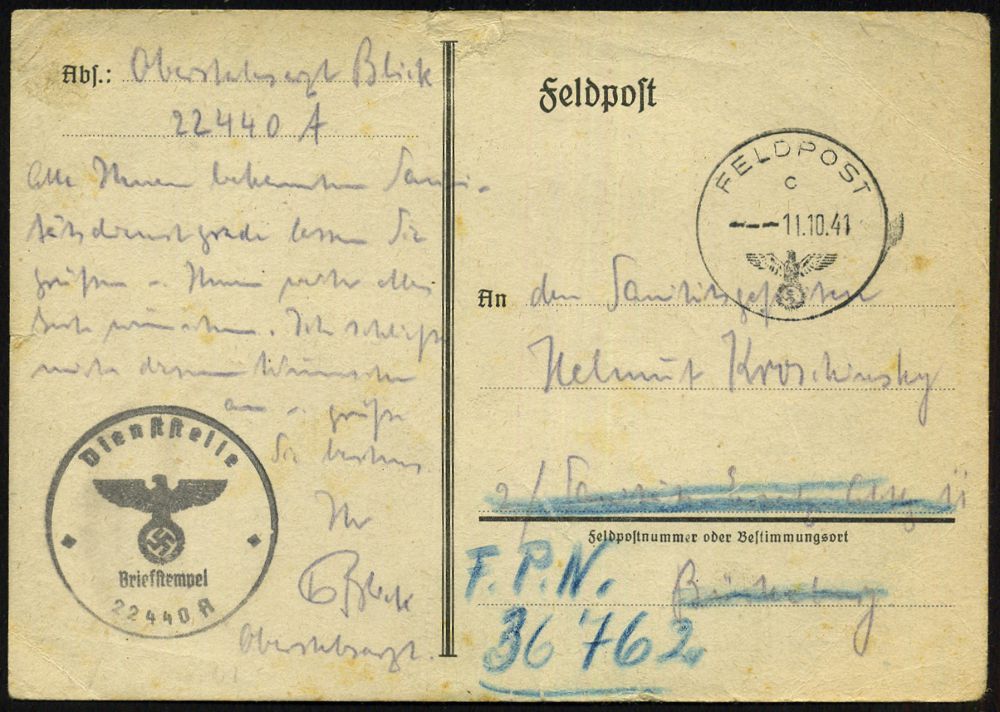 Abs.: Oberstabsarzt Blick
22440 A
Alle Ihnen bekannten Sani-
tätsdienstgrade lassen Sie
grüßen u. Ihnen alles
Gute wünschen. Ich schließe
mich diesen Wünschen
an u. grüße
Sie bestens
Ihr
Blick
Oberstabsarzt.
Dienststelle
Briefstempel
22440 A
Feldpost
FELDPOST
c
---11.10.41
An den Sanitätsgefreiten
Helmut Kroschinsky
2/ Sanitäts Ersatz Abtlg. 11
Feldpostnummer oder Bestimmungsort
Bückeburg
F.P.N.
36762